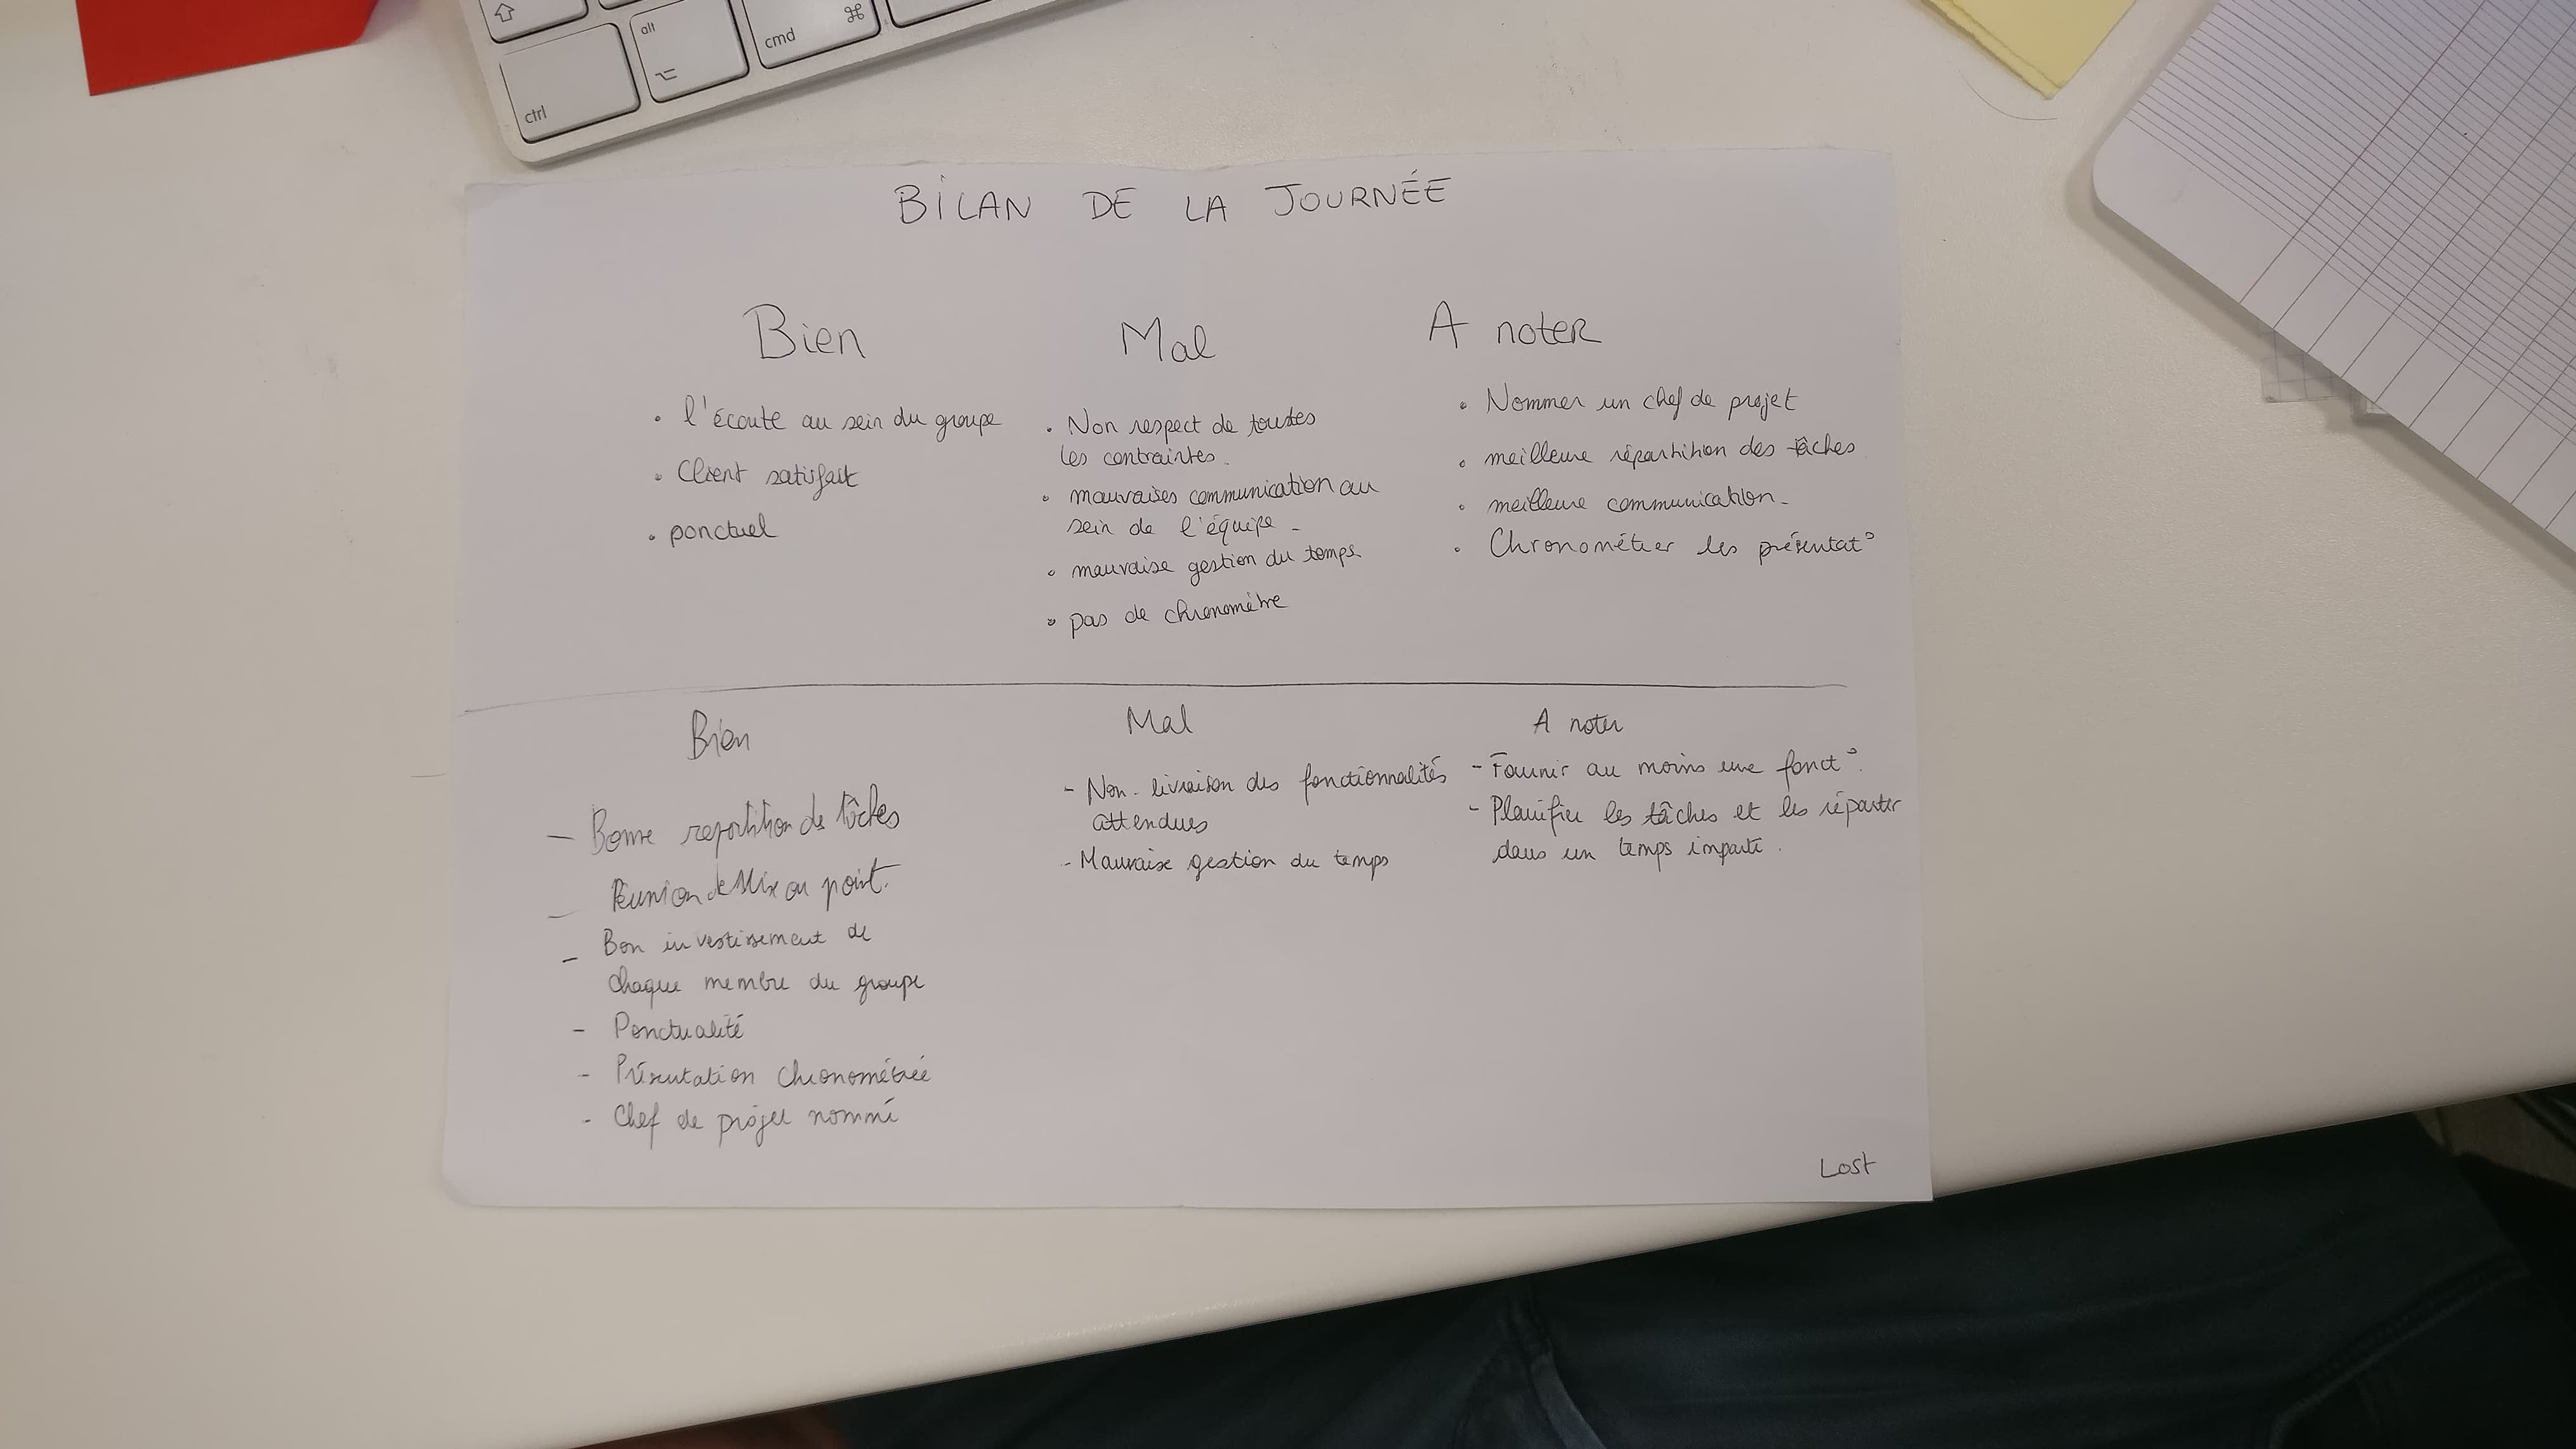 alt
cmd
ctrl
BILAN DE LA JOURNÉE
Bien
• l'écoute au sein du groupe
• Client satisfait
• ponctuel
Mal
• Non respect de toutes
les contraintes.
• mauvaises communication au
sein de l'équipe -
• mauvaise gestion du temps
• pas de chronomètre
A noter
• Nommer un chef de projet
• meilleure répartition des tâches
• meilleure communication.
• Chronométrer les présentat°
Bien
- Bonne repartition des tâches
- Réunion de Mise au point.
- Bon investissement de
chaque membre du groupe
- Ponctualité
- Présentation chronométrée
- Chef de projet nommé
Mal
- Non-livraison des fonctionnalités
attendues
- Mauvaise gestion du temps
A noter
- Fournir au moins une fonct°.
- Planifier les tâches et les répartir
dans un temps imparti.
Lost